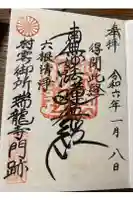 奉拝
得聞此経
令和六年一月八日
南無妙法蓮華経
六根清浄
村雲御所瑞龍寺門跡